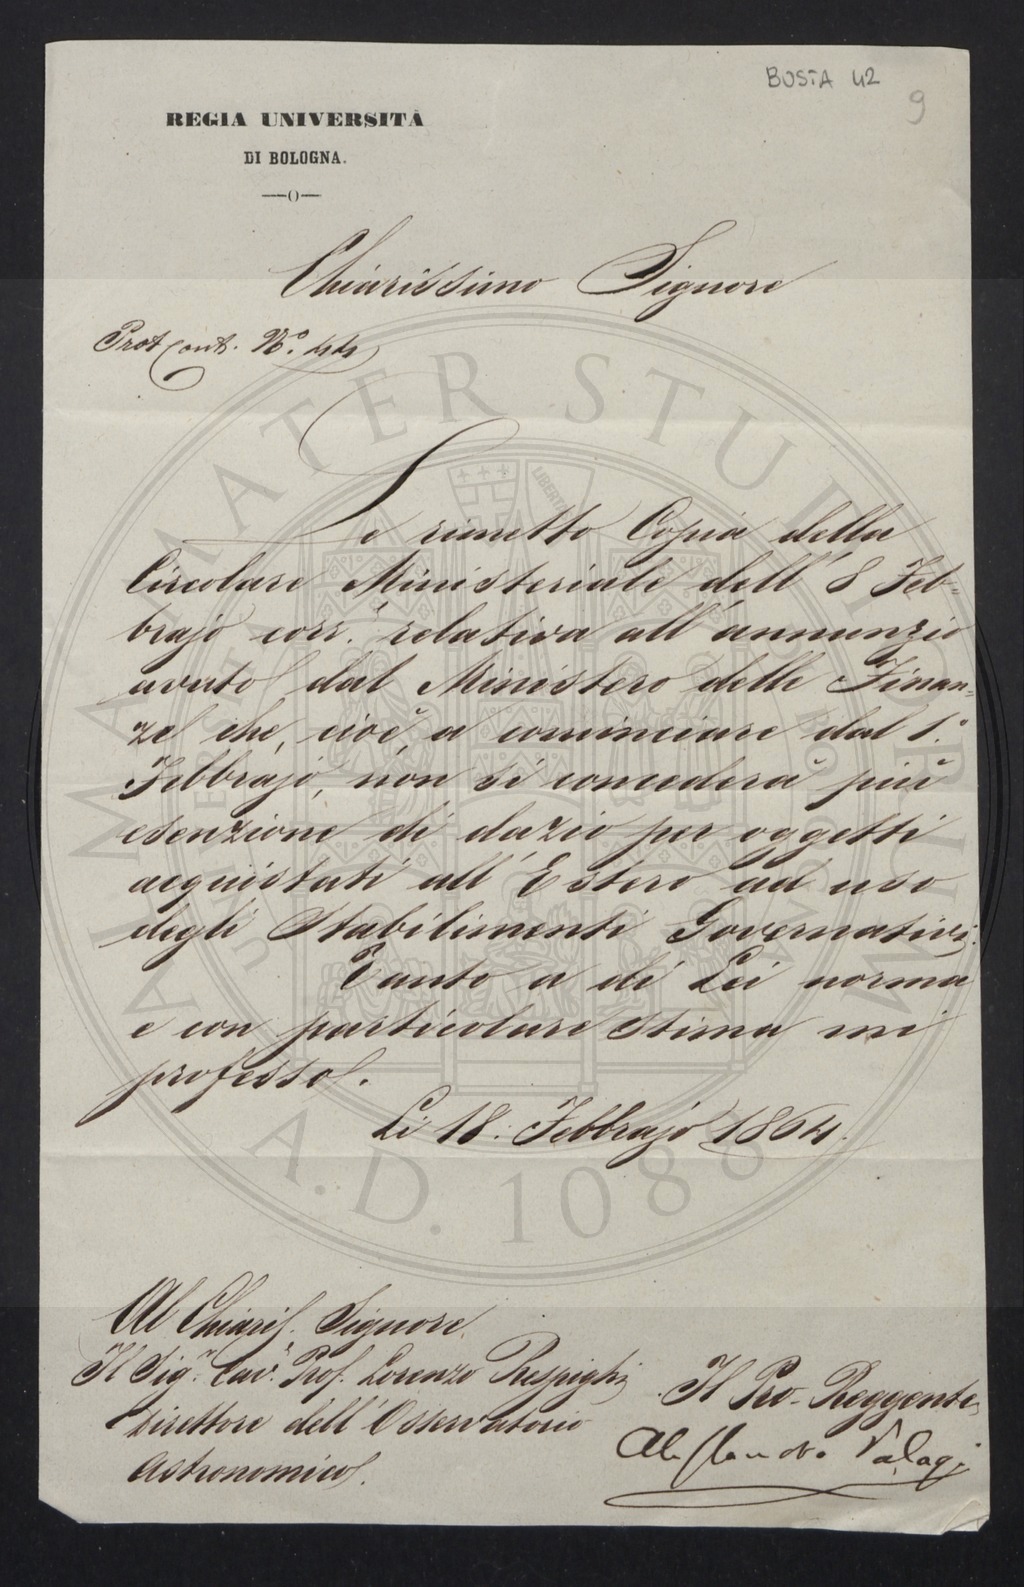 BUSTA 42
9
REGIA UNIVERSITÀ
DI BOLOGNA.
Chiarissimo Signore
Prot. Cont. N.° 44
Le rimetto Copia della
Circolare Ministeriale dell' 8 Feb-
brajo corr.e relativa all'annunzio
avuto dal Ministero delle Finan-
ze che, cioè, a cominciare dal 1.°
Febbrajo, non si concederà più
esenzione di dazio per oggetti
acquistati all'Estero ad uso
degli Stabilimenti Governativi.
Tanto a di Lei norma
e con particolare stima mi
professo.
Li 18. Febbrajo 1864.
Al Chiaris. Signore
Il Sig.r Cav.e Prof. Lorenzo Respighi
Direttore dell'Osservatorio
Astronomico.
Il Pro-Reggente
Alessandro Palagi
ALMA MATER STUDIORUM
A.D. 1088
LIBERTAS